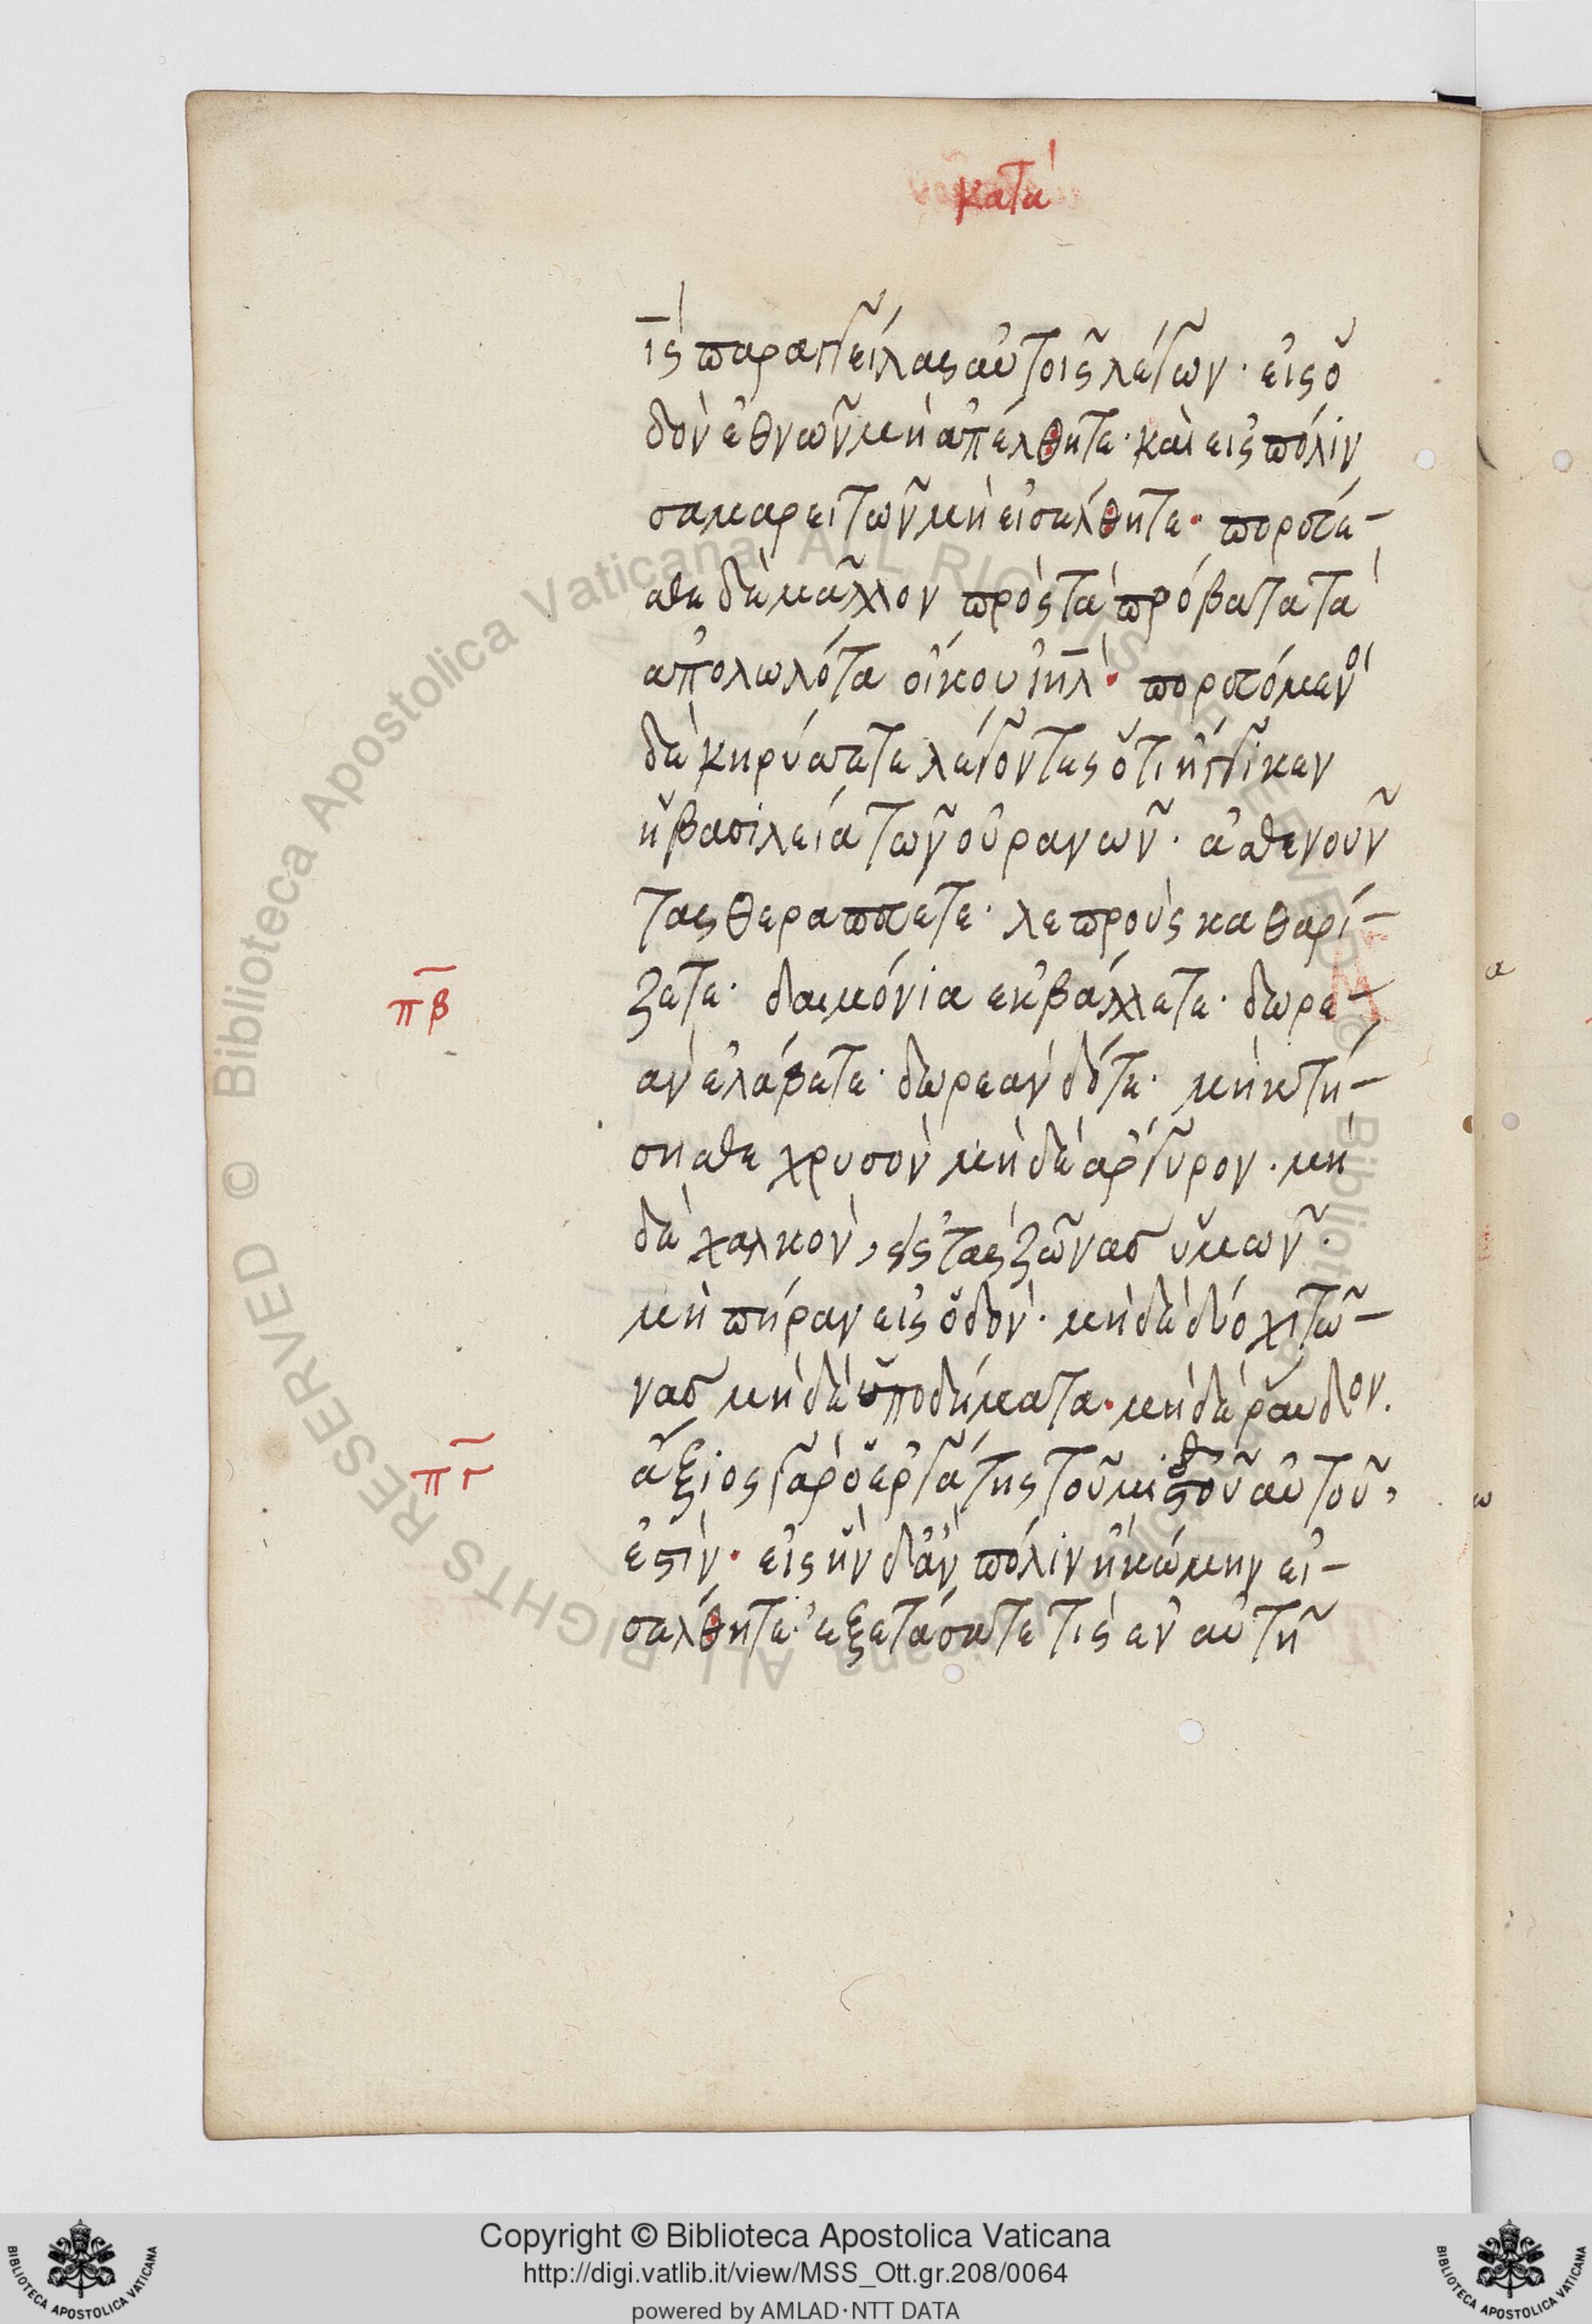 κατὰ
ις παραγγείλας αὐτοῖς λέγων· εἰς ὁ
δὸν ἐθνῶν μὴ ἀπέλθητε· καὶ εἰς πόλιν
σαμαρειτῶν μὴ εἰσέλθητε· πορεύε-
σθε δὲ μᾶλλον πρὸς τὰ πρόβατα τὰ
ἀπολωλότα οἴκου ιηλ· πορευόμενοι
δὲ κηρύσσετε λέγοντες ὅτι ἤγγικεν
ἡ βασιλεία τῶν οὐρανῶν· ἀσθενοῦν
τας θεραπεύετε· λεπροὺς καθαρί-
πβ
ζετε· δαιμόνια ἐκβάλλετε· δωρε-
ὰν ἐλάβετε· δωρεὰν δότε· μὴ κτή-
σησθε χρυσὸν μὴδὲ ἄργυρον· μὴ
δὲ χαλκὸν, εἰς τὰς ζῶνας ὑμῶν·
μὴ πήραν εἰς ὁδὸν· μὴδὲ δύο χιτῶ-
νας μὴδὲ ὑποδήματα· μὴδὲ ῥάβδον.
πγ
ἄξιος γὰρ ὁ ἐργάτης τοῦ μισθοῦ αὐτοῦ,
ἐστὶν· εἰς ἣν δἂν πόλιν ἢ κώμην εἰ-
σέλθητε· ἐξετάσατε τίς ἐν αὐτῆ
Copyright © Biblioteca Apostolica Vaticana
http://digi.vatlib.it/view/MSS_Ott.gr.208/0064
powered by AMLAD·NTT DATA